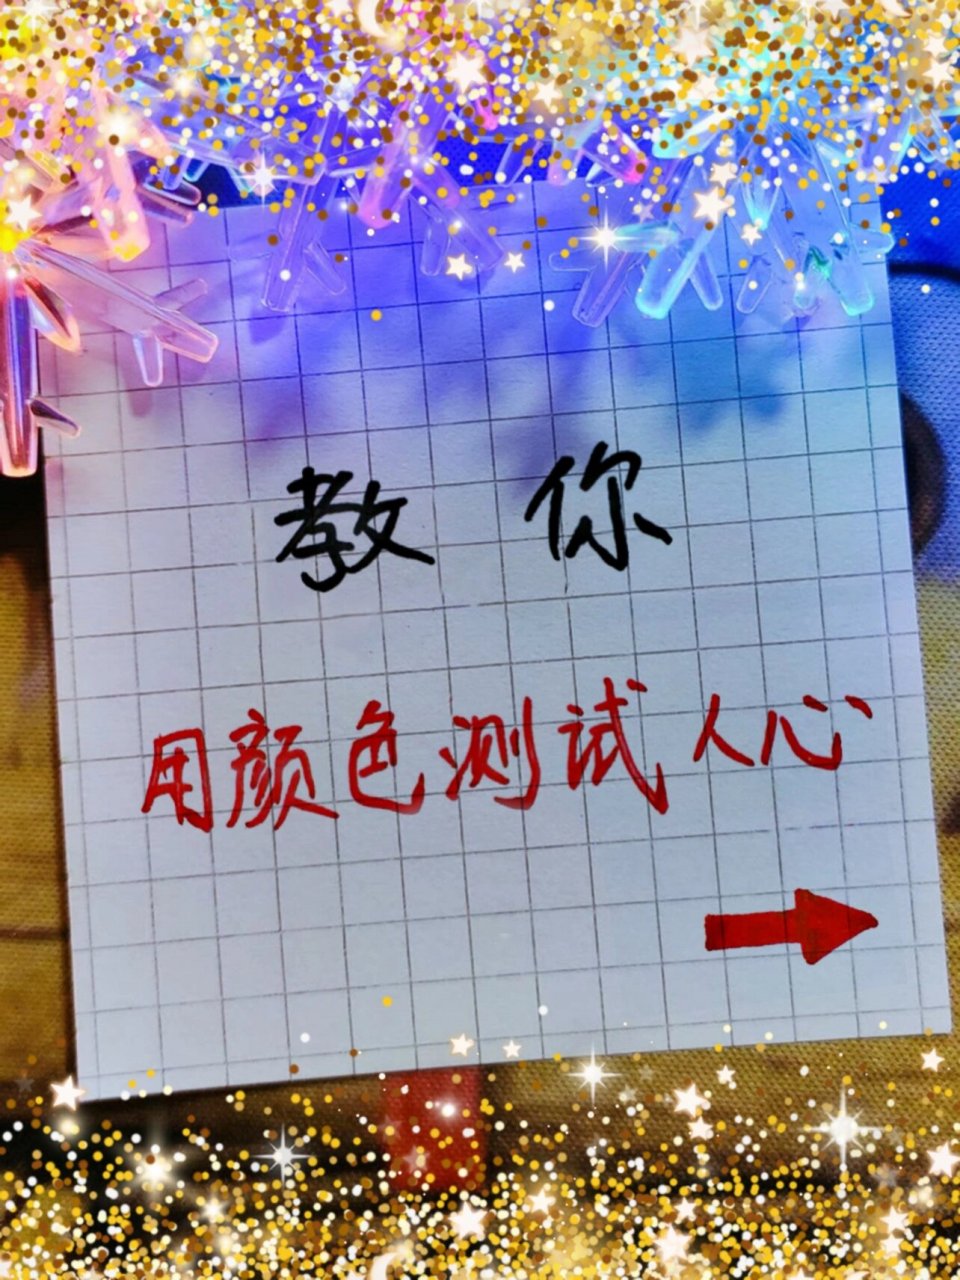 教你
用颜色测试人心